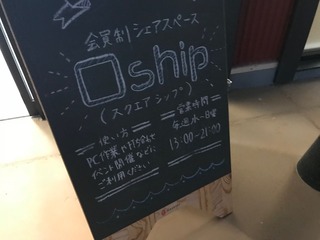 会員制シェアスペース
□ship
(スクエアシップ)
使い方
PC作業や打合せ
イベント開催などに
ご利用ください
営業時間
毎週水〜日曜
13:00-21:00